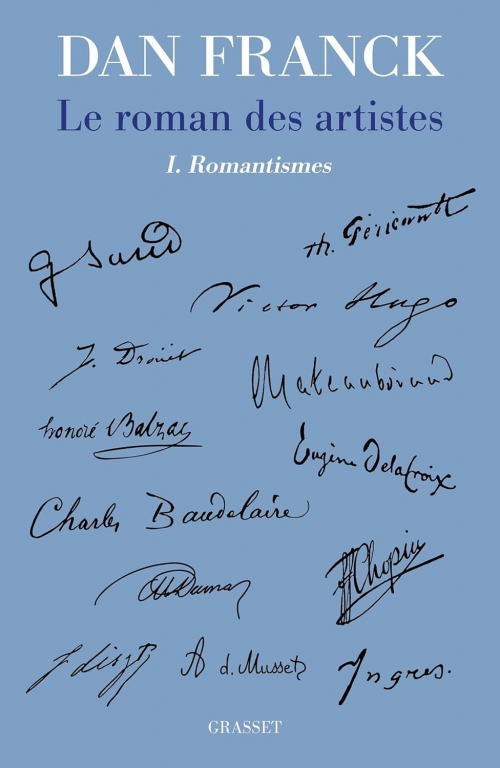 DAN FRANCK
Le roman des artistes
I. Romantismes
G Sand
Th. Géricault
Victor Hugo
J. Droüet
Chateaubriand
honoré Balzac
Eugène Delacroix
Charles Baudelaire
Alex Dumas
FChopin
F Liszt
A d. Musset
Ingres.
GRASSET